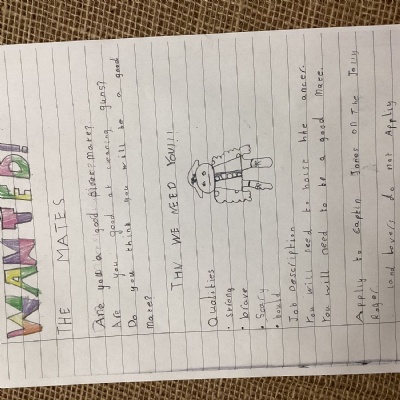 WANTED!
THE MATES
Are you a good pirate mate?
Are you good at cleaning guns?
Do you think you will be a good
mate?
THV WE NEED YOU!!!
Qualities
• strong
• brave
• scary
• bould
Job Description
You will need to hoise the ancer.
You will need to be a good mate.
Apply to Captin Jones on The Jolly
Roger
land lovers do not Apply